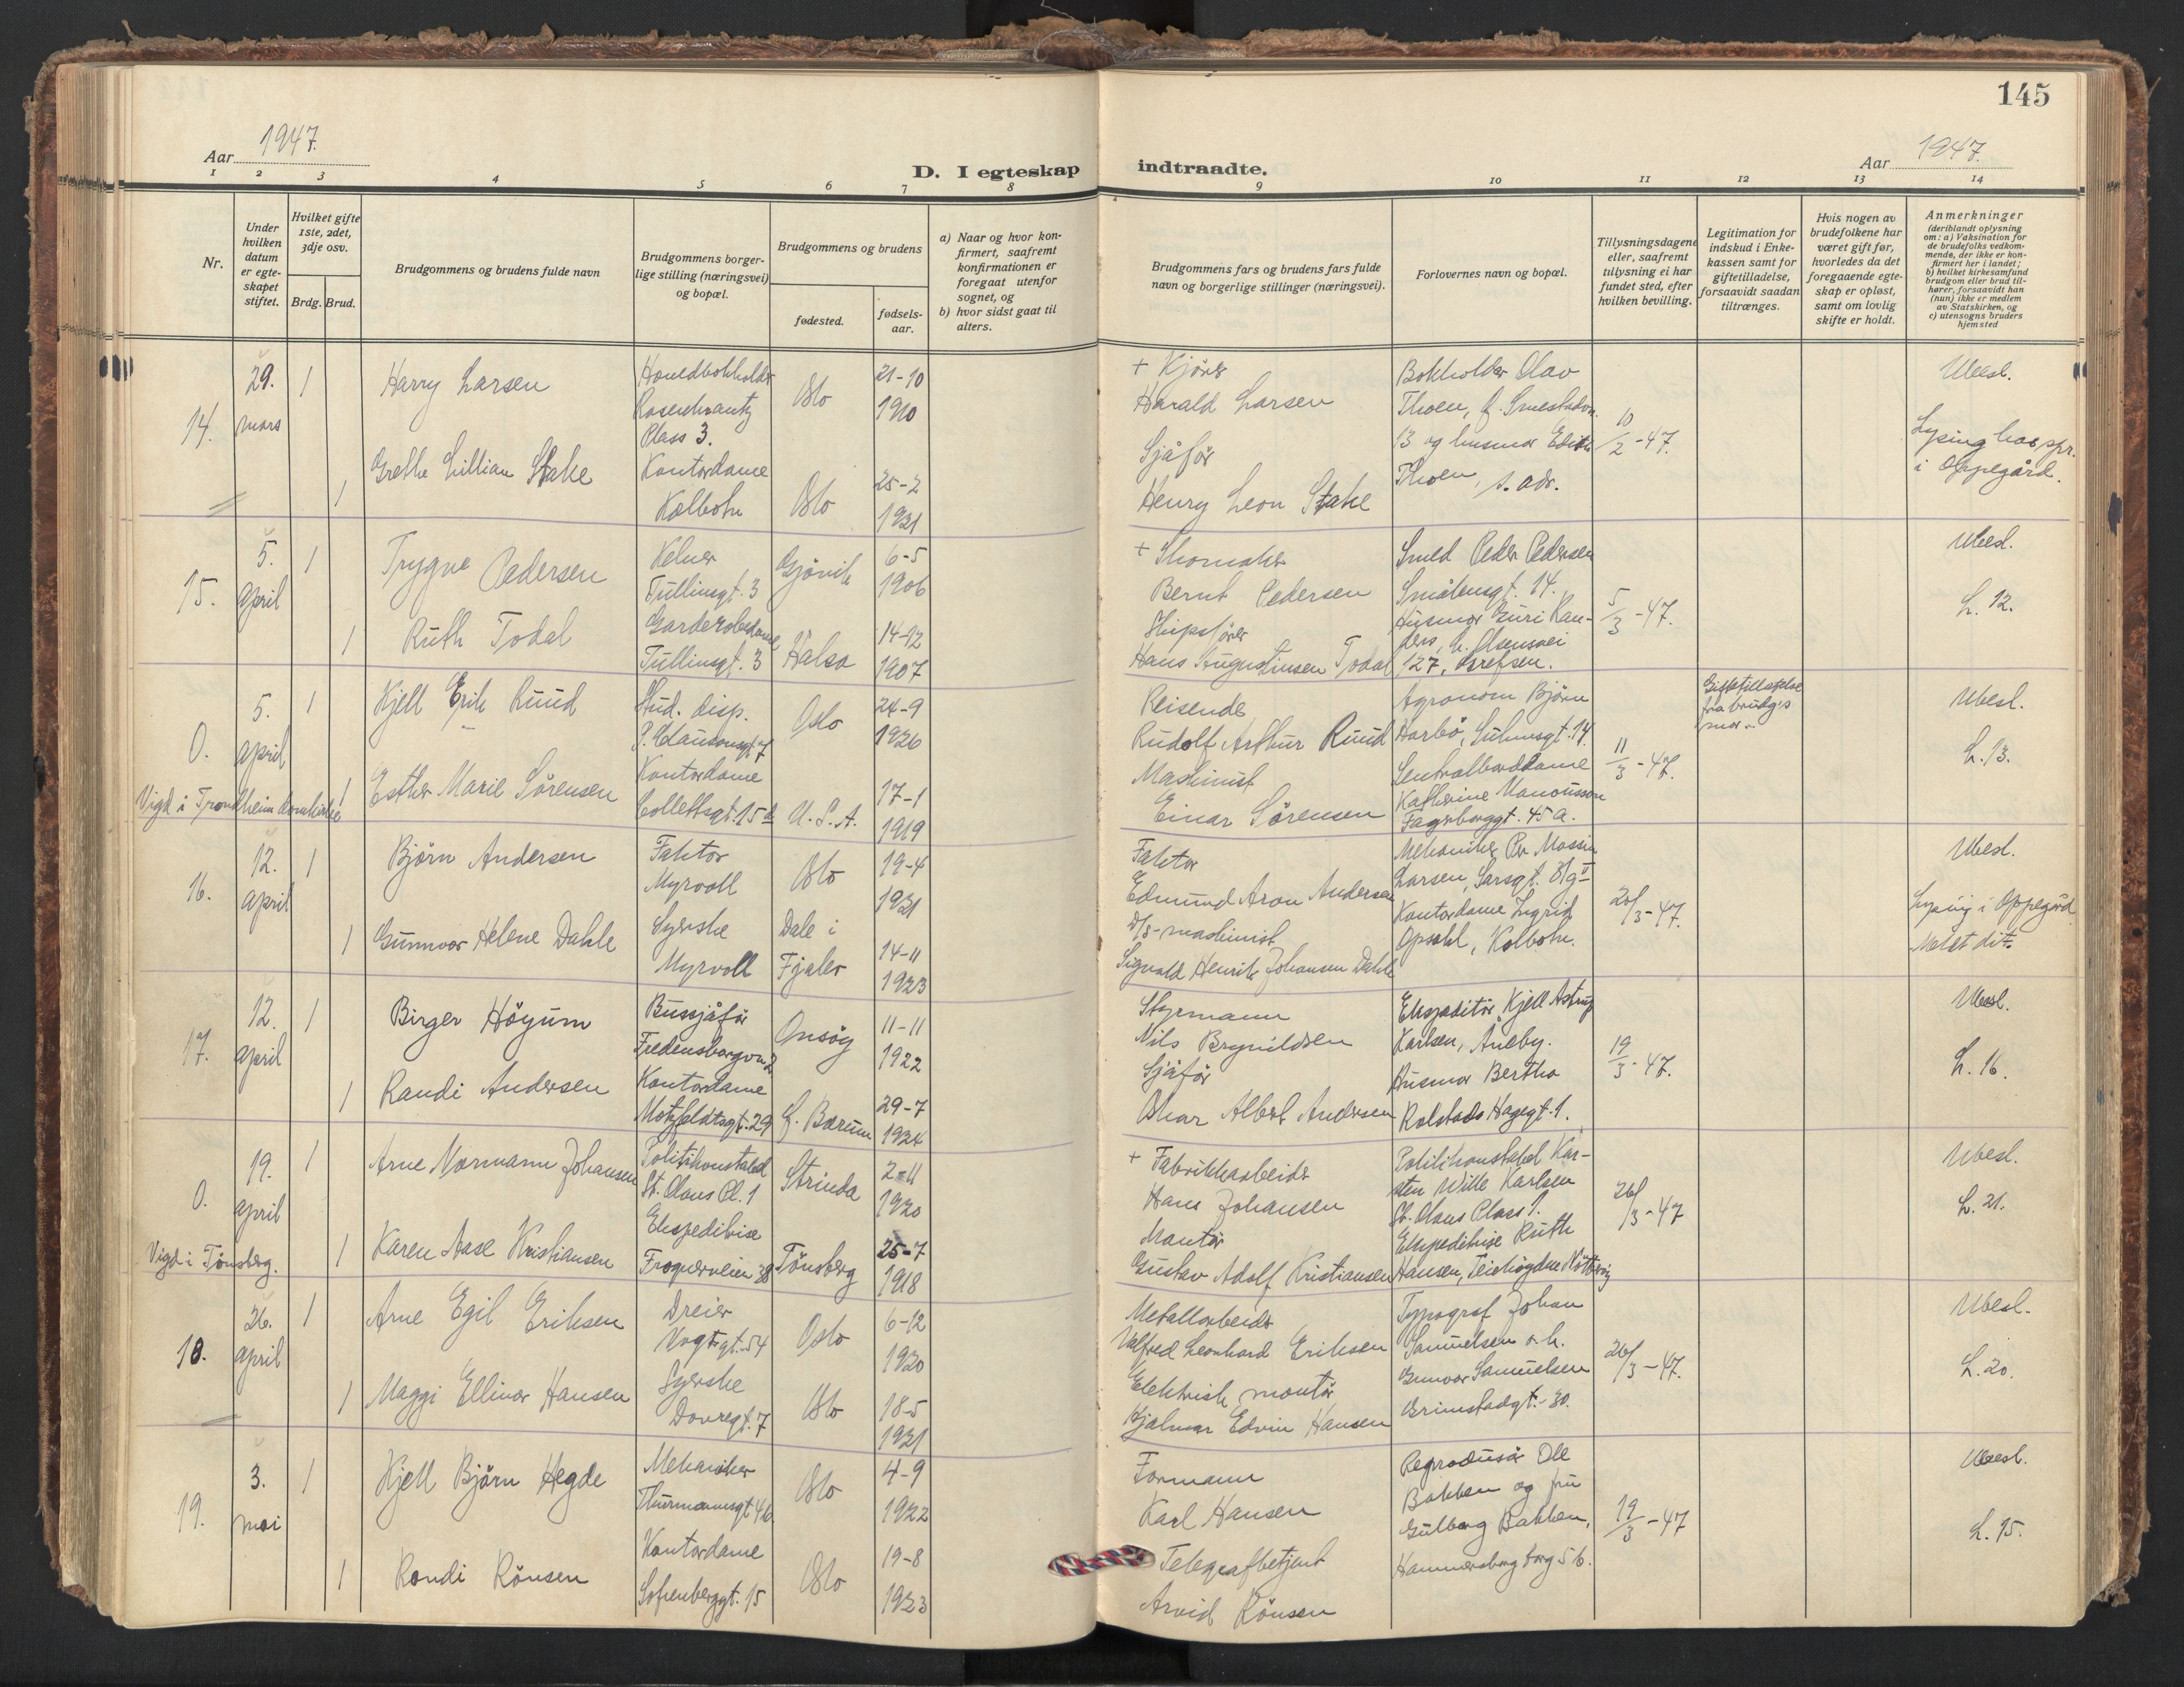 145
Aar 1947.
D. I egteskap
indtraadte.
Aar 1947.
1 2 3 4 5 6 7 8 9 10 11 12 13 14
Nr.
Under hvilken datum er egteskapet stiftet.
Hvilket gifte 1ste, 2det, 3dje osv.
Brdg. Brud.
Brudgommens og brudens fulde navn
Brudgommens borgerlige stilling (næringsvei) og bopæl.
Brudgommens og brudens
fødested.
fødselsaar.
a) Naar og hvor konfirmert, saafremt konfirmationen er foregaat utenfor sognet, og
b) hvor sidst gaat til alters.
Brudgommens fars og brudens fars fulde navn og borgerlige stillinger (næringsvei).
Forlovernes navn og bopæl.
Tillysningsdagene eller, saafremt tillysning ei har fundet sted, efter hvilken bevilling.
Legitimation for indskud i Enkekassen samt for giftetilladelse, forsaavidt saadan tiltrænges.
Hvis nogen av brudefolkene har været gift før, hvorledes da det foregaaende egteskap er opløst, samt om lovlig skifte er holdt.
Anmerkninger
(deriblandt oplysning om: a) Vaksination for de brudefolks vedkommende, der ikke er konfirmert her i landet;
b) hvilket kirkesamfund brudgom eller brud tilhører, forsaavidt han (hun) ikke er medlem av Statskirken, og
c) utensogns bruders hjemsted
14.
29. mars
1
Harry Larsen
Hovedbokholder
Rosenkrantz
Plass 3.
Oslo
21-10
1910
+ Kjører
Harald Larsen
Bokholder Olav
Thoen, f. Smestadvn.
13 og husmor Edith
Thoen, s. adr.
10/2-47.
Ubesl.
Lysing hos spr.
i Oppegård.
1
Grethe Lillian Stake
Kontordame
Kolbotn
Oslo
25-2
1921
Sjåfør
Henry Leon Stake
15.
5. april
1
Trygve Pedersen
Kelner
Tullinsgt. 3
Gjøvik
6-5
1906
+ Skomaker
Bernt Pedersen
Smed Peder Pedersen
Smålensgt. 14.
Husmor Guri Randers, h. Olsensvei
127, Grefsen.
5/3-47.
Ubesl.
L. 12.
1
Ruth Todal
Garderobedame
Tullinsgt. 3
Halsa
14-12
1907
Skipsfører
Hans Augustinsen Todal
0.
5. april
1
Kjell Erik Ruud
Stud. disp.
P. Clausonsgt. 7
Oslo
24-9
1926
Reisende
Rudolf Arthur Ruud
Agronom Bjørn
Harbø, Suhmsgt. 14.
Sentralborddame
Katherine Manousson
Fagerborggt. 45 a.
11/3-47.
Giftetillatelse
fra brudg.s
mor.-
Ubesl.
L. 13.
1
Esther Marie Sørensen
Kontordame
Collettsgt. 15 d
U. S. A.
17-1
1919
Maskinist
Einar Sørensen
Vigd i Trondheim domkirke
16.
12. april
1
Bjørn Andersen
Faktor
Myrvoll
Oslo
19-4
1921
Faktor
Edmund Aron Andersen
Mekaniker Per Mossin
Larsen, Sarsgt.
Kontordame Ingrid
Opsahl, Kolbotn.
20/3-47.
Ubesl.
Lysing i Oppegård
Meldt dit.
1
Gunnvor Helene Dahle
Syerske
Myrvoll
Dale i
Fjaler
14-11
1923
D/S-maskinist
Sigvald Henrik Johansen Dahle
17.
12. april
1
Birger Høyum
Bussjåfør
Fredensborgvn. 2
Onsøy
11-11
1922
Styrmann
Nils Brynildsen
Ekspeditør Kjell Astrup
Karlsen, Åneby.
Husmor Bertha
Rolstads Hagegt. 1.
19/3-47.
Ubesl.
L. 16.
1
Randi Andersen
Kontordame
Motzfeldtsgt. 29
Ø. Bærum
29-7
1924
Sjåfør
Oskar Albert Andersen
0.
19. april
1
Arne Normann Johansen
Politikonstabel
St. Olavs Pl. 1
Strinda
2-11
1920
+ Fabrikkarbeider
Hans Johansen
Politikonstabel Karsten Wille Karlsen
St. Olavs Plass 1.
Ekspeditrise Ruth
Hansen, Teiehøgdne Nøtterøy
26/3-47
Ubesl.
L. 21.
1
Karen Aase Kristiansen
Ekspeditrise
Frognerveien 38
Tønsberg
25-7
1918
Montør
Gustav Adolf Kristiansen
Vigd i Tønsberg.
18.
26. april
1
Arne Egil Eriksen
Dreier
Vogtsgt. 54
Oslo
6-12
1920
Metallarbeider
Valfred Leonhard Eriksen
Typograf Johan
Samuelsen o. h.
Gunvor Samuelsen
Grimstadgt. 30.
26/3-47.
Ubesl.
L. 20.
1
Maggi Ellinor Hansen
Syerske
Dovregt. 7
Oslo
18-5
1921
Elektrisk montør
Hjalmar Edvin Hansen
19.
3. mai
1
Kjell Bjørn Hegde
Mekaniker
Thurmannsgt 4 b
Oslo
4-9
1922
Formann
Karl Hansen
Reprodusør Ole
Bakken og fru
Gulborg Bakken,
Hammersborg torg 5 b.
19/3-47
Ubesl.
L. 15.
1
Randi Rönsen
Kontordame
Sofienberggt. 15
Oslo
19-8
1923
Telegrafbetjent
Arvid Rönsen